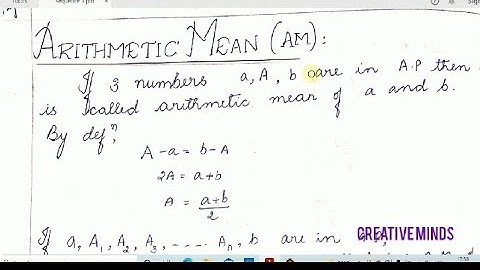 ARITHMETIC MEAN (AM):
If 3 numbers a, A, b are in A.P then
is called arithmetic mean of a and b.
By defⁿ,
A - a = b - A
2A = a + b
A = a+b
2
If a, A₁, A₂, A₃, ..... Aₙ, b are in
CREATIVE MINDS
17:58